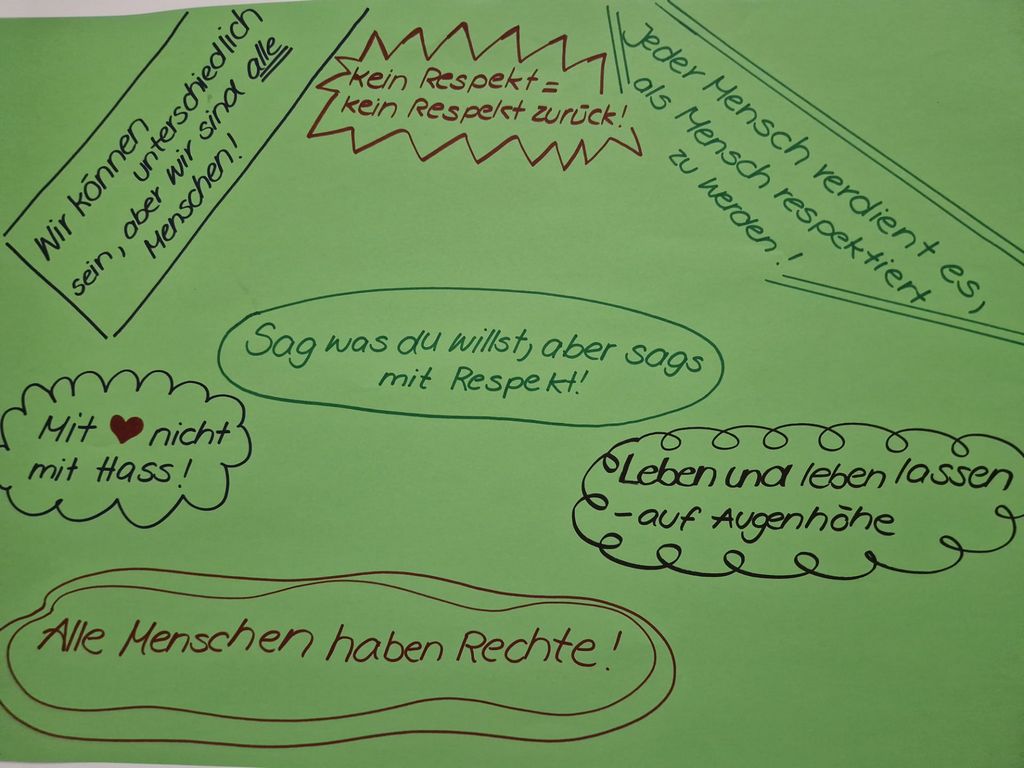 Wir können
unterschiedlich
sein, aber wir sind alle
Menschen!
kein Respekt =
kein Respekt zurück!
Jeder Mensch verdient es,
als Mensch respektiert
zu werden!
Sag was du willst, aber sags
mit Respekt!
Mit ♥ nicht
mit Hass!
Leben und leben lassen
- auf Augenhöhe
Alle Menschen haben Rechte!